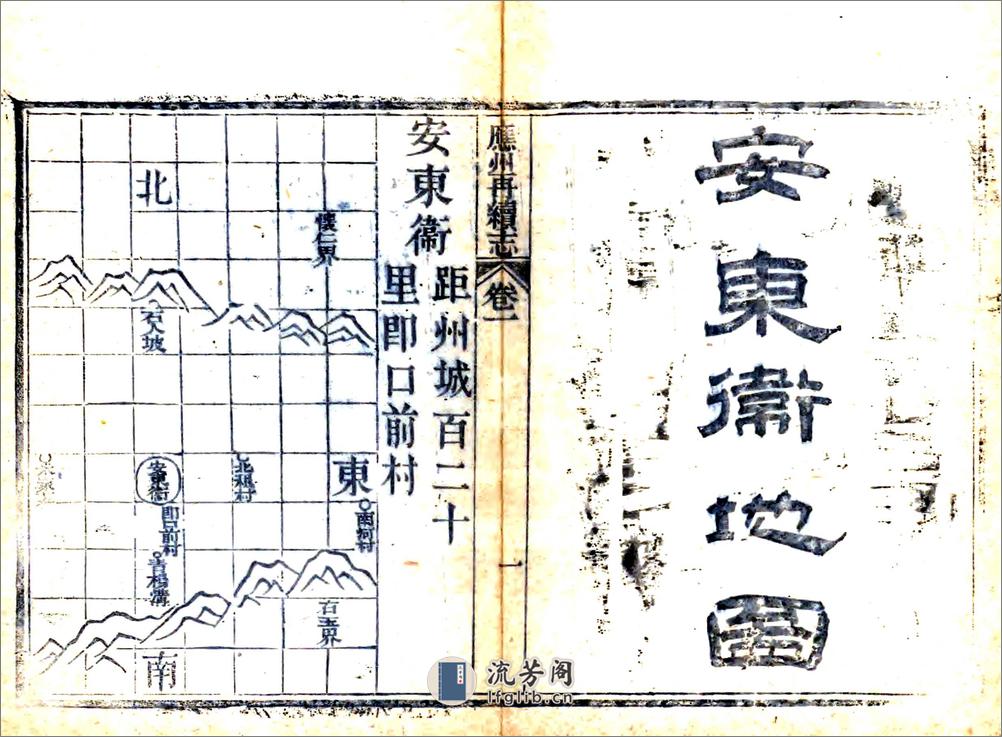 安東衞地啚
應州再續志
卷一
一
安東衞
距州城百二十
里即口前村
懷仁界
東
南河村
石玉界
北祖村
北
石人坡
安東衞
即口前村
青楊溝
南
流芳阁
lfglib.cn